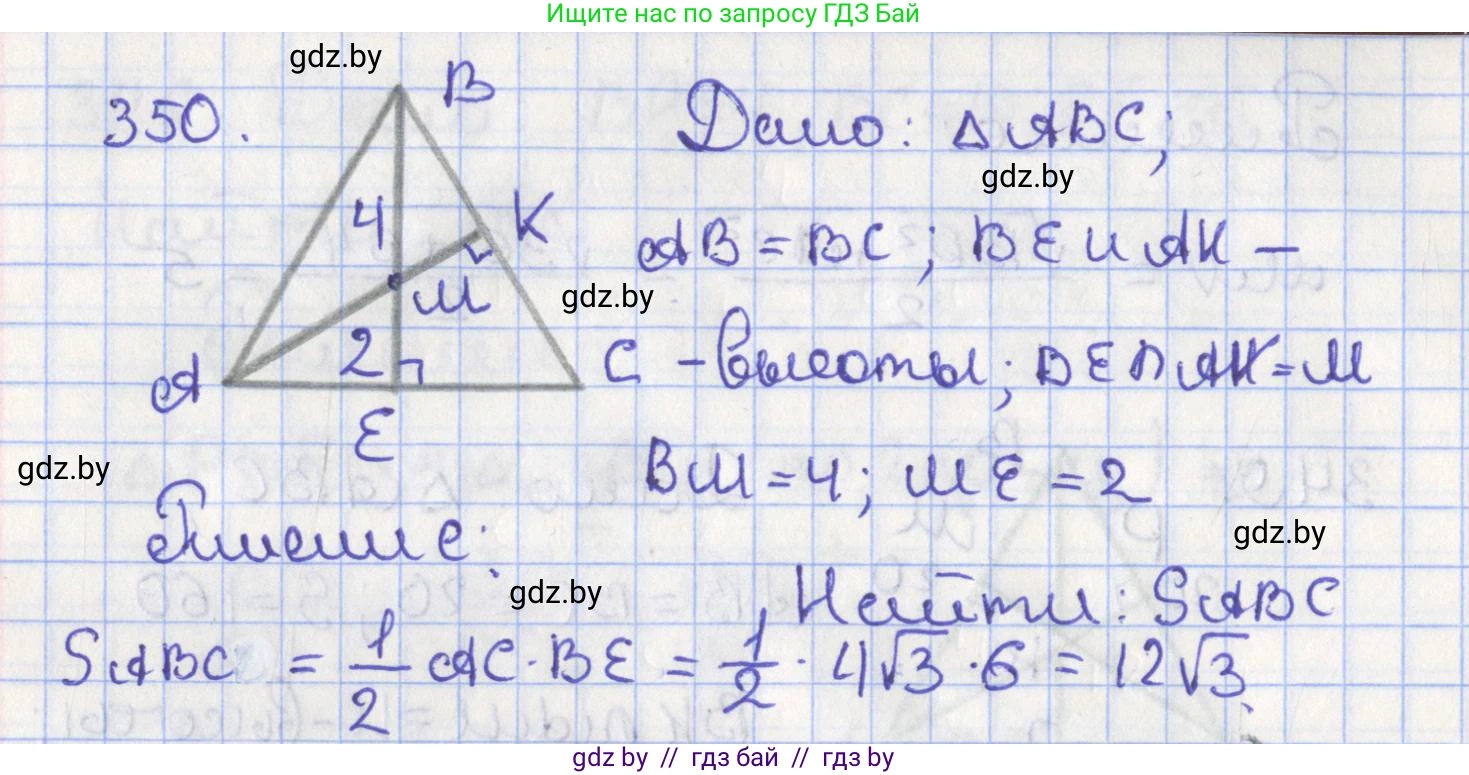 Ищите нас по запросу ГДЗ Бай
gdz.by
350.
B
Дано: △ABC;
gdz.by
4
K
AB = BC; BE и AK –
M
gdz.by
2
A
C
– высоты; BE∩AK = M
E
gdz.by
BM = 4; ME = 2
Решение:
gdz.by
gdz.by
Найти: SABC
SABC = 1/2 AC · BE = 1/2 · 4√3 · 6 = 12√3.
gdz by // гдз бай // гдз by